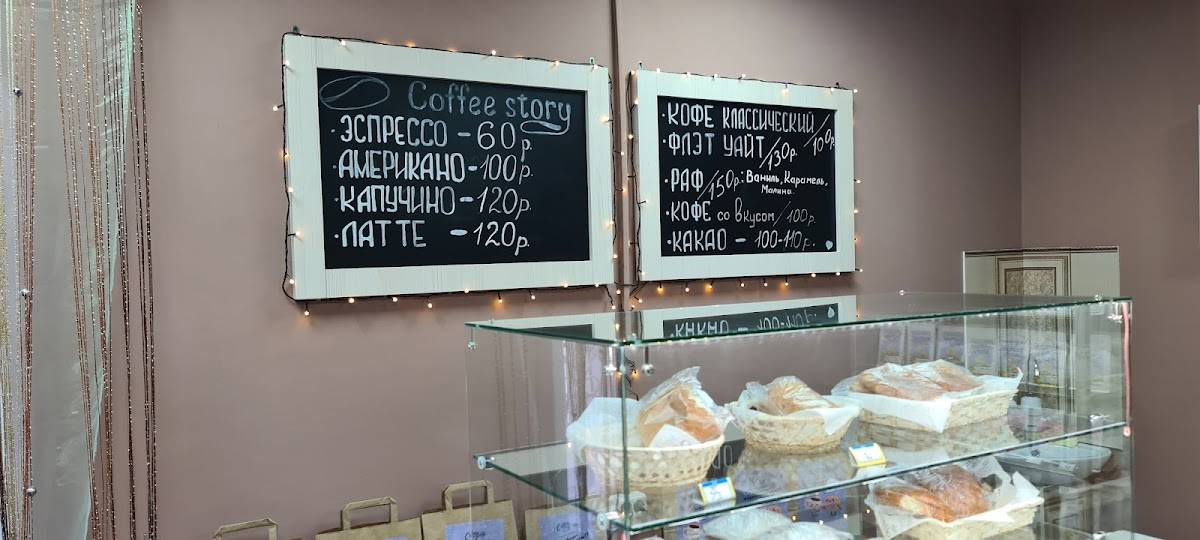 Coffee story
·ЭСПРЕССО - 60р.
·АМЕРИКАНО - 100р.
·КАПУЧИНО - 120р.
·ЛАТТЕ - 120р.
·КОФЕ КЛАССИЧЕСКИЙ / 100р.
·ФЛЭТ УАЙТ / 130р.
·РАФ / 150р.: Ваниль, Карамель,
Малина.
·КОФЕ со вкусом / 100р.
·КАКАО - 100-110р.